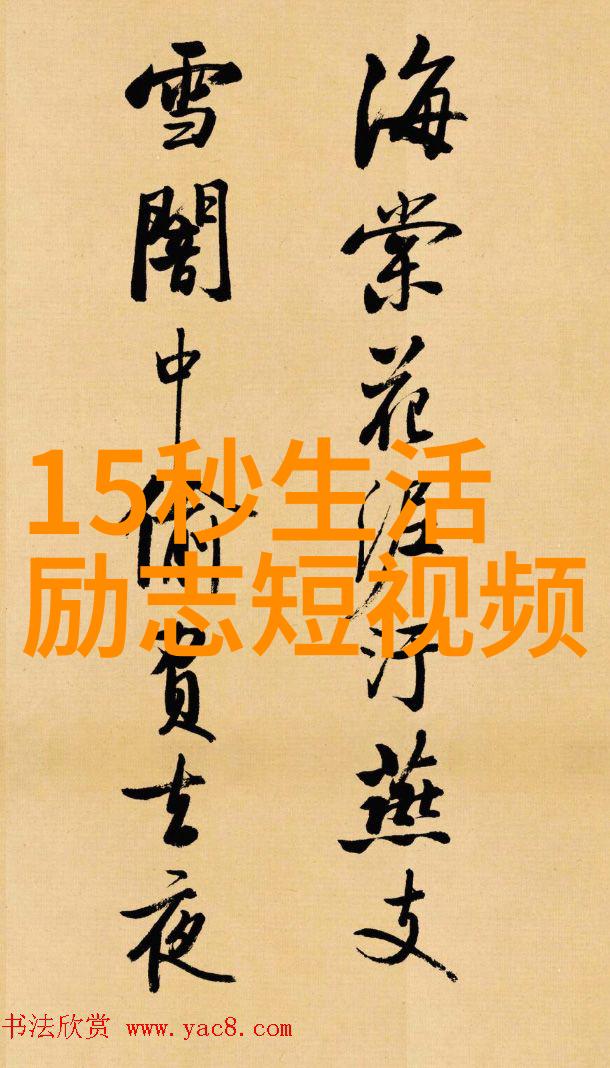 海棠花泥汙燕支
雪闇中偷負去夜
15秒生活
励志短视频
书法欣赏 www.yac8.com